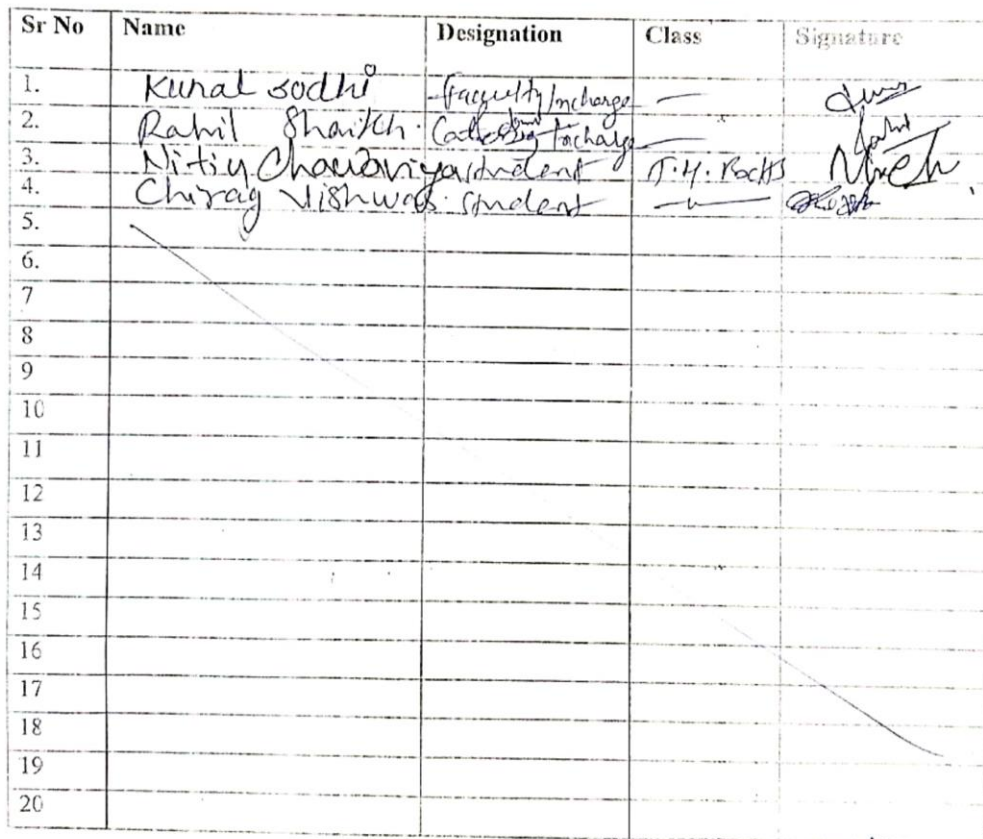 Sr No Name Designation Class Signature
1. Kunal sodhi Faculty Incharge —
2. Rahil Shaikh. Incharge —
3. Nitin Chawariya student T.Y.
4. Chirag Vishwas. student —"—
5.
6.
7
8
9
10
11
12
13
14
15
16
17
18
19
20